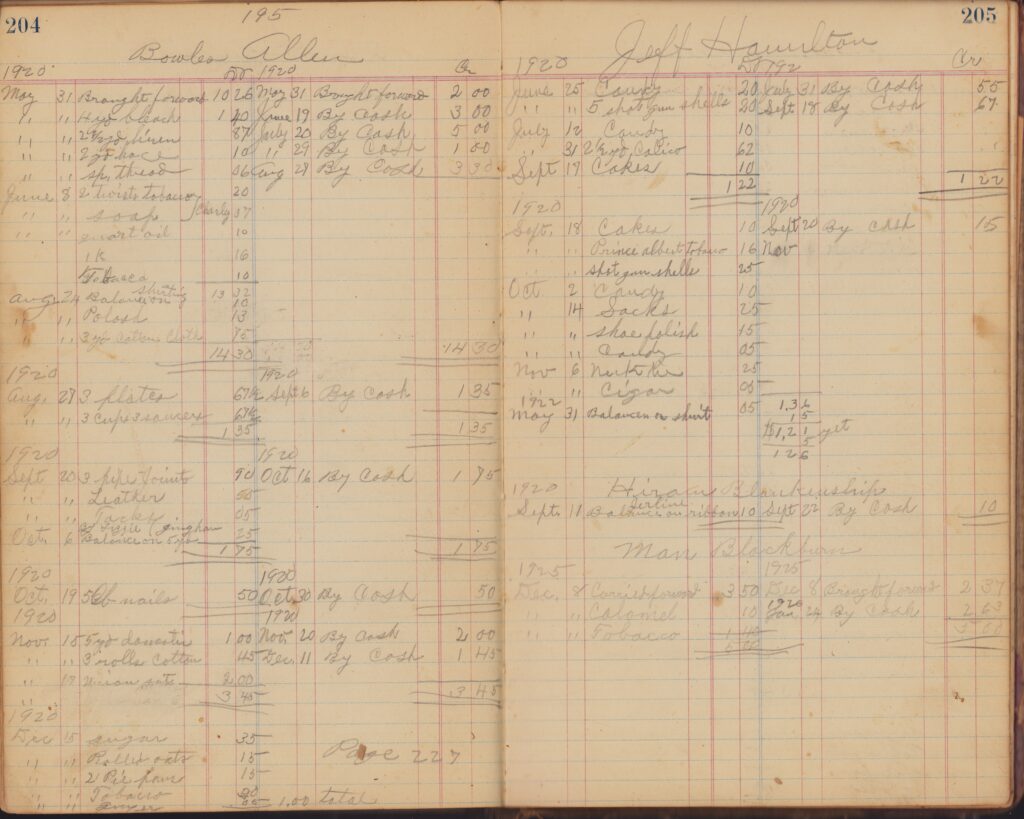 204
195
Bowles Allen
1920 Dr 1920 Cr
May 31 Brought forward 10 26 May 31 Brought forward 2 00
" " 4 yd bleach 1 40 June 19 By Cash 3 00
" " 87 July 20 By Cash 5 00
" " 2 yd lace 10 " 29 By Cash 1 00
" " sp. thread 06 Aug 29 By Cash 3 30
June 8 2 twists tobacco 20
" " soap 37
" " quart oil 10
16
Tobacco 10
13 32
Aug. 24 Balance on shirting 10
" " Potash 13
" " 3 yd cotton cloth 75
14 30 14 30
1920 1920
Aug. 27 3 plates 67½ Sept 6 By Cash 1 35
" " 3 Cups 3 saucers 67½
1 35 1 35
1920 1920
Sept 20 3 pipe joints 90 Oct 16 By Cash 1 75
" " Leather
" " Tacks 05
Oct. 6 Balance on 5 yd gingham 25
1 75 1 75
1920 1920
Oct. 19 5 lb nails 50 Oct. 30 By Cash 50
1920 1920
Nov. 18 5 yd domestic 1 00 Nov. 20 By Cash 2 00
" " 3 rolls cotton 45 Dec. 11 By Cash 1 45
" 19 Union suts 2 00
3 45 3 45
1920
Dec 15 sugar 35
" " Rolled oats 15 Page 227
" " 2 Pie pans 15
" " Tobacco
" " 1.00 total
205
Jeff Hamilton
1920 Dr 192 Cr
June 25 Candy 20 July 31 By Cash 55
" " 5 shot gun shells 20 Sept 18 By Cash 67
July 12 Candy 10
" 31 2½ yd Calico 62
Sept 19 Cakes 10
1 22 1 22
1920 1920
Sept. 18 Cakes 10 Sept 20 By Cash 15
" " Prince albert tobaco 16 Nov
" " shot gun shells 25
Oct 2 Candy 10
" 14 Sacks 25
" " shoe polish 15
" " Candy 05
Nov 6 Neck tie 25
" " Cigar 05
1922
May 31 Balance on shirt 05
1.36
15
$1,21 yet
5
1 26
1920 Hiram Blankenship
Sept. 11 Balance on ribbon 10 Sept 22 By Cash 10
Man Blackburn
1925 1925
Dec. 8 Carried forward 3 50 Dec 8 Brought forward 2 37
1926
" " Calomel 10 Jan 24 By Cash 2 63
" " Tobacco 1 40 5 00
5 00